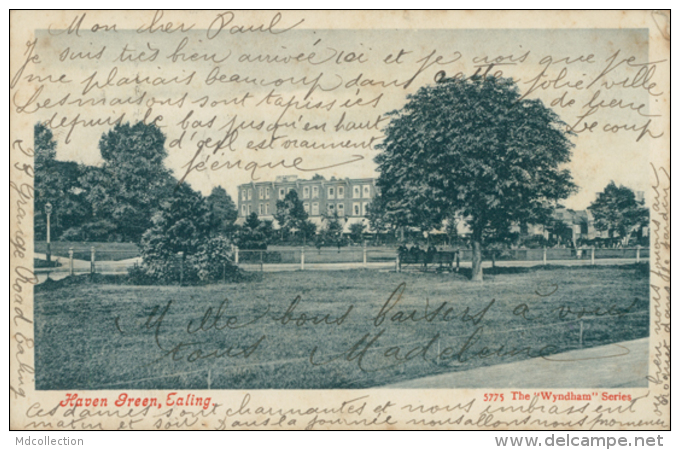 Mon cher Paul
Je suis très bien arrivée ici et je vois que je
me plairais beaucoup dans cette jolie ville
Les maisons sont tapissées de lierre
depuis le bas jusqu'en haut
d'elle c'est vraiment
23 Grange Road Ealing
Mille bons baisers à vous
tous Madeleine
Haven Green, Ealing.
5775 The "Wyndham" Series
Ces dames sont charmantes et nous embrassent
matin et soir Dans la journée nous allons nous promener
Mdcollection
www.delcampe.net